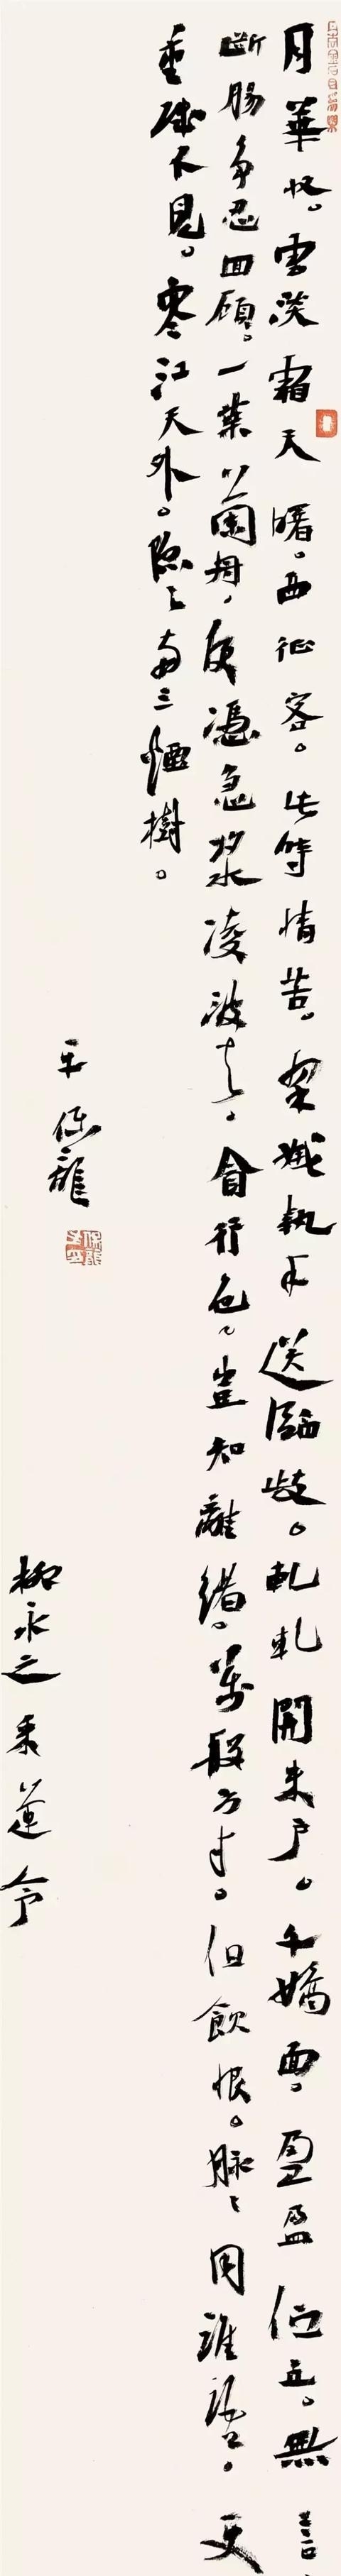 月華收。雲淡霜天曙。西征客。此時情苦。翠娥執手送臨歧。軋軋開朱户。千嬌面。盈盈佇立。無言
斷腸爭忍回顧。一葉蘭舟。便憑急槳凌波去。貪行色。豈知離緒。萬般方寸。但飲恨。脉々同誰語。更
重城不見。寒江天外。隱々兩三煙樹。
王保龍
柳永之采蓮令